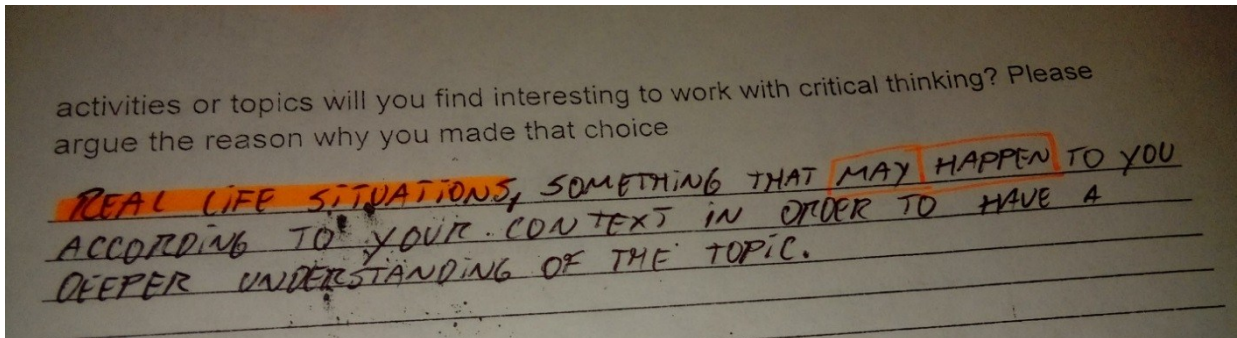 activities or topics will you find interesting to work with critical thinking? Please
argue the reason why you made that choice
REAL LIFE SITUATIONS, SOMETHING THAT MAY HAPPEN TO YOU
ACCORDING TO YOUR CONTEXT IN ORDER TO HAVE A
DEEPER UNDERSTANDING OF THE TOPIC.